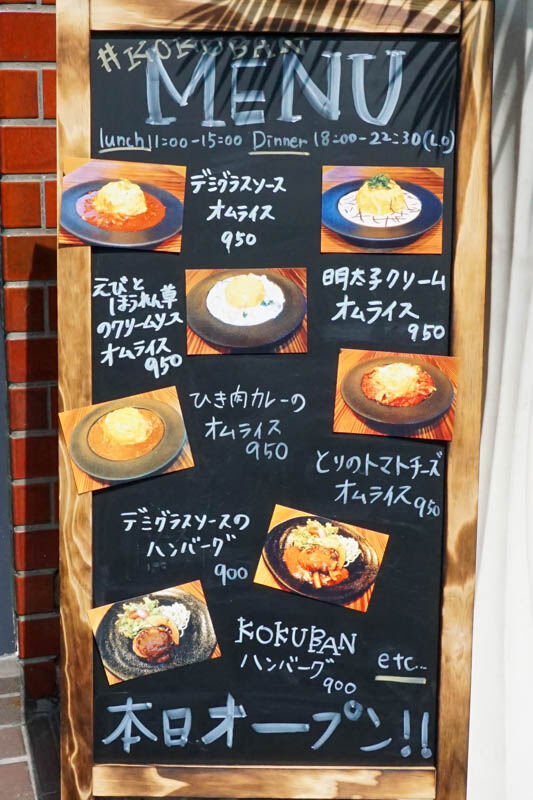 #KOKUBAN
MENU
lunch 11:00-15:00 Dinner 18:00-22:30(LO)
デミグラスソース
オムライス
950
明太子クリーム
オムライス
950
えびと
ほうれん草
のクリームソース
オムライス
950
ひき肉カレーの
オムライス
950
とりのトマトチーズ
オムライス950
デミグラスソースの
ハンバーグ
900
KOKUBAN
ハンバーグ
900
etc...
本日オープン!!